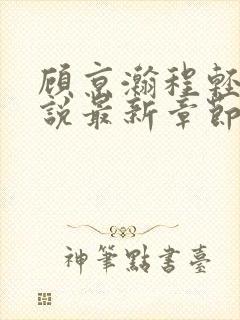 顾京瀚程輕
說最新章節
神筆點書臺